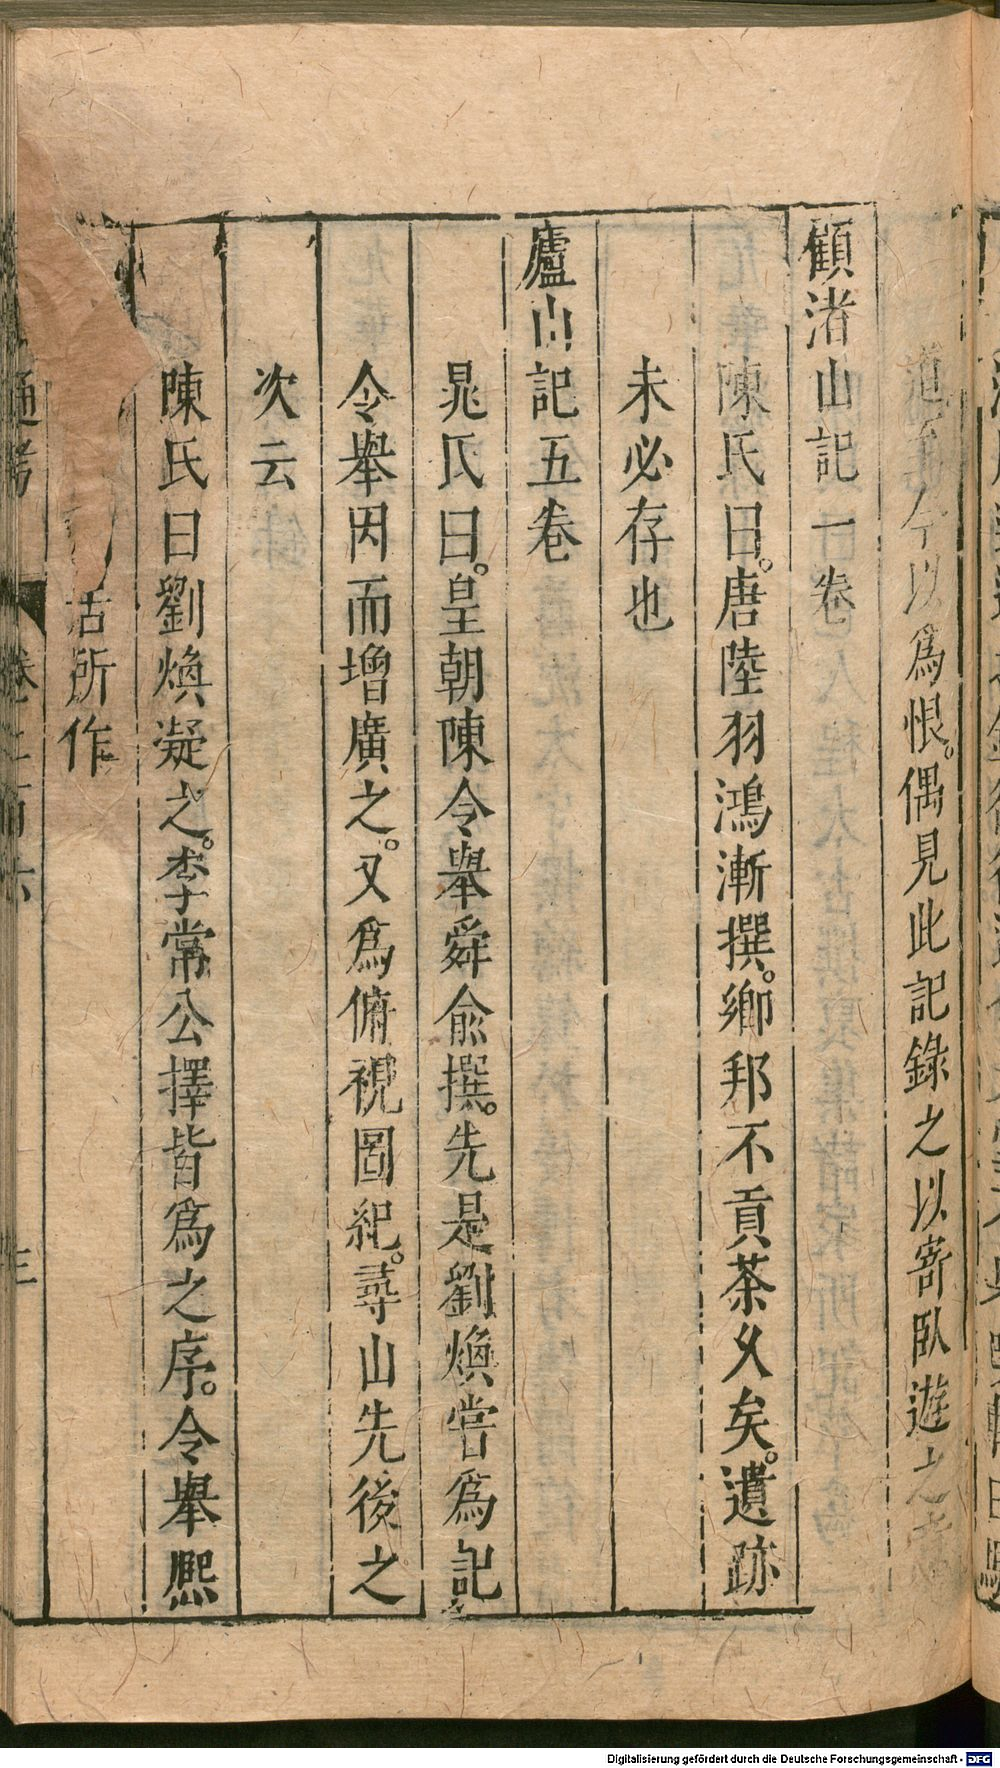 今以爲恨。偶見此記錄之以寄臥遊之
顧渚山記一卷
陳氏曰。唐陸羽鴻漸撰。鄉邦不貢茶乆矣。遺跡
未必存也
廬山記五卷
晁氏曰。皇朝陳令舉舜俞撰。先是劉煥嘗爲記
令舉因而增廣之。又爲俯視圖紀。尋山先後之
次云
陳氏曰劉煥凝之。李常公擇皆爲之序。令舉熙
所作
通考
卷二百六
三
Digitalisierung gefördert durch die Deutsche Forschungsgemeinschaft - DFG